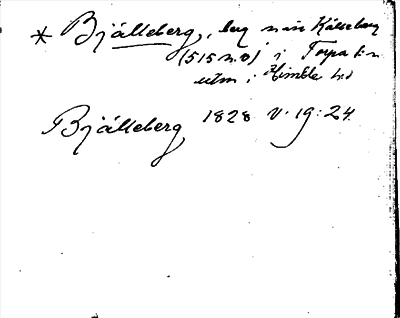 * Bjälleberg, beg n:in Kälseberg
(515 n.o) i Torpa s:n
utm i Himle hd
Bjälleberg 1828 V. 19:24.